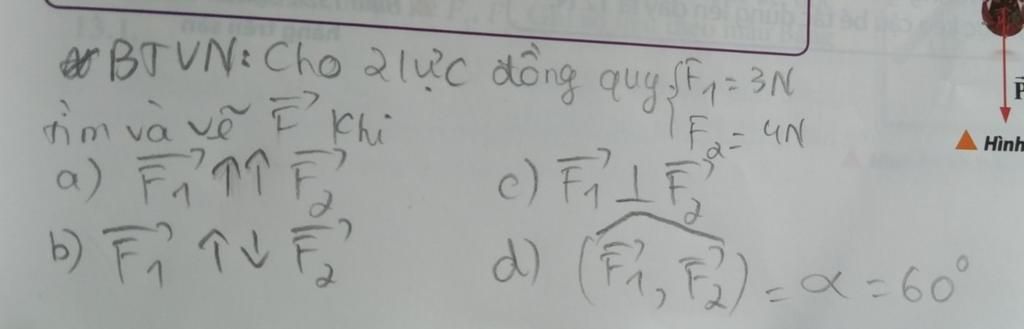 BTVN: Cho 2 lực đồng quy { F₁ = 3N
F₂ = 4N
tìm và vẽ F⃗ khi
a) F₁⃗ ↑↑ F₂⃗
c) F₁⃗ ⊥ F₂⃗
b) F₁⃗ ↑↓ F₂⃗
d) (F₁⃗, F₂⃗) = α = 60°
P⃗
▲ Hình